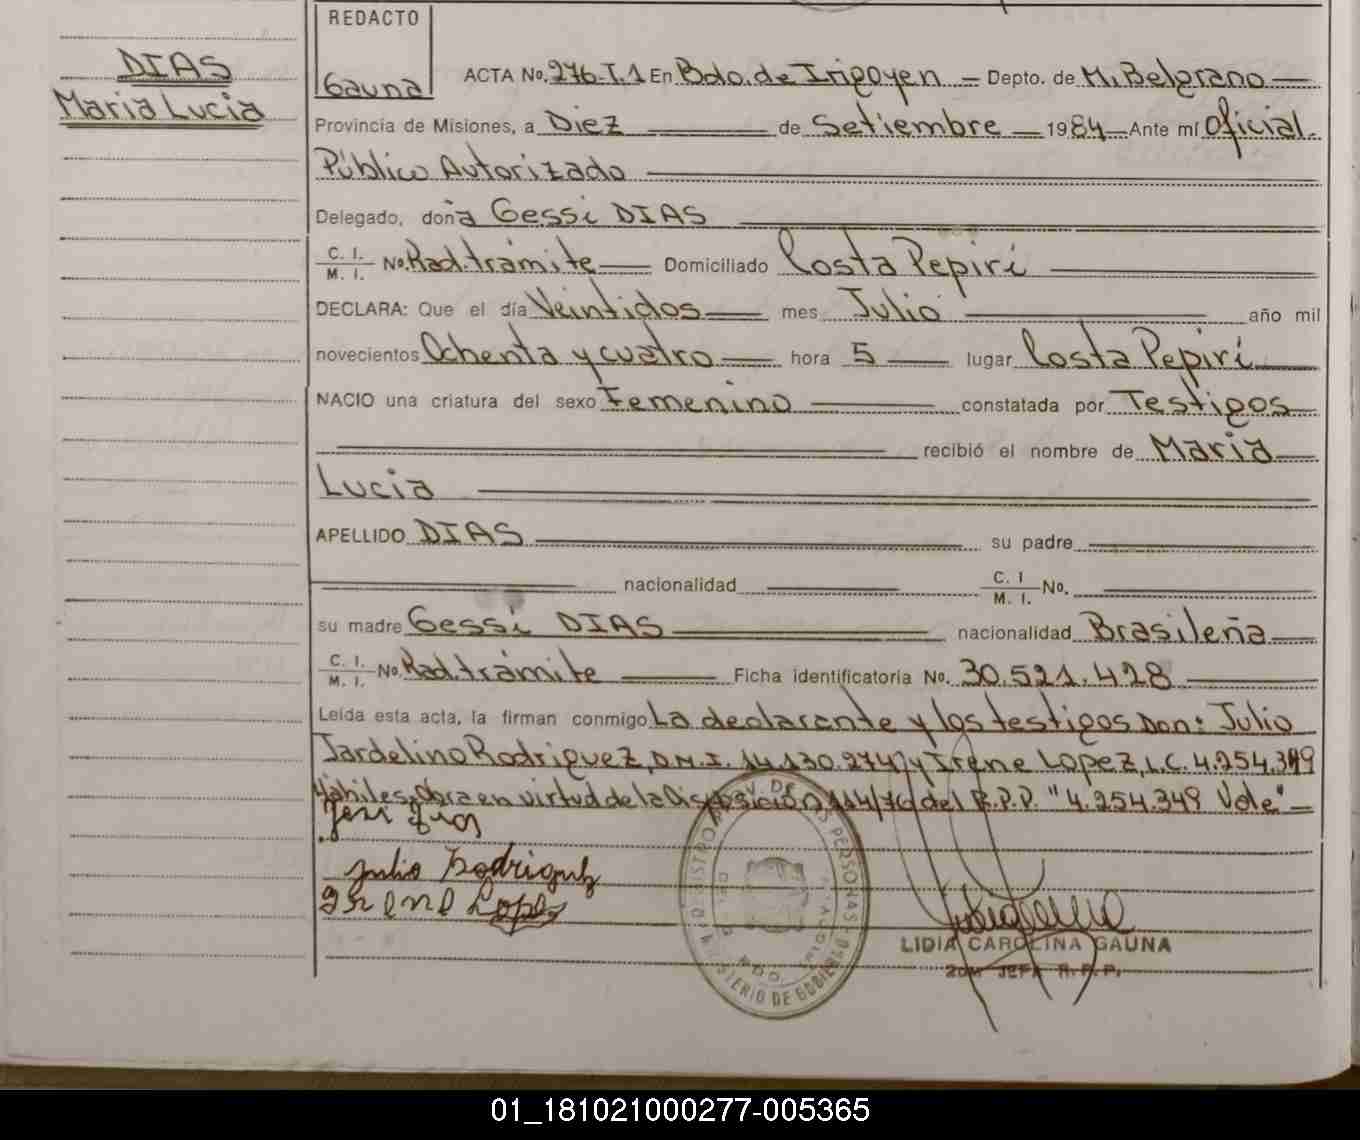 DIAS
Maria Lucia
REDACTO
Gauna
ACTA No. 276-T.1 En Bdo. de Irigoyen — Depto. de M. Belgrano
Provincia de Misiones, a Diez de Setiembre 1984 Ante mí Oficial
Público Autorizado
Delegado, doña Gessi DIAS
C. I.
M. I. No. Rad. trámite Domiciliado Costa Pepirí
DECLARA: Que el día Veintidos mes Julio año mil
novecientos Ochenta y cuatro hora 5 lugar Costa Pepirí
NACIO una criatura del sexo Femenino constatada por Testigos
recibió el nombre de Maria
Lucia
APELLIDO DIAS su padre
nacionalidad C. I
M. I. No.
su madre Gessi DIAS nacionalidad Brasileña
C. I.
M. I. No. Rad. trámite Ficha identificatoria No. 30.521.428
Leída esta acta, la firman conmigo La declarante y los testigos Don: Julio
Jardelino Rodriguez, D.M.I. 14.130.274 y Irene Lopez, L.C. 4.254.349
Hábiles. Obra en virtud de la Disposición del R.P.P. "4.254.349 Vale"
Julio Rodriguez
Irene Lopez
MINISTERIO DE GOBIERNO
LIDIA CAROLINA GAUNA
2DA JEFA R.P.P.
01_181021000277-005365